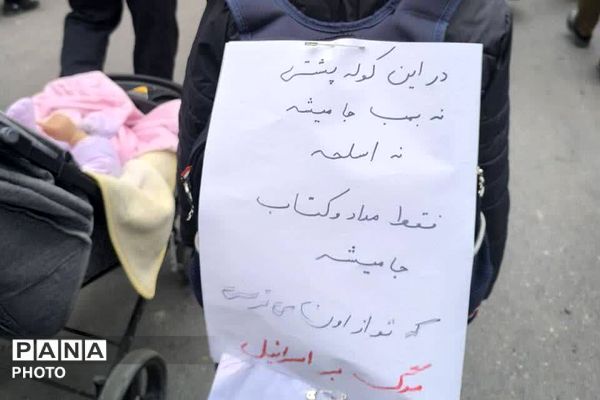 در این کوله پشتی
نه بمب جا میشه
نه اسلحه
فقط مداد و کتاب
جا میشه
که تو از اون می ترسی
مرگ بر اسرائیل
PANA
PHOTO